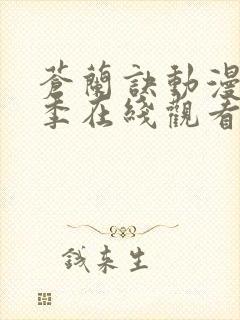 蒼蘭訣動漫
季在綫觀看
錢來生